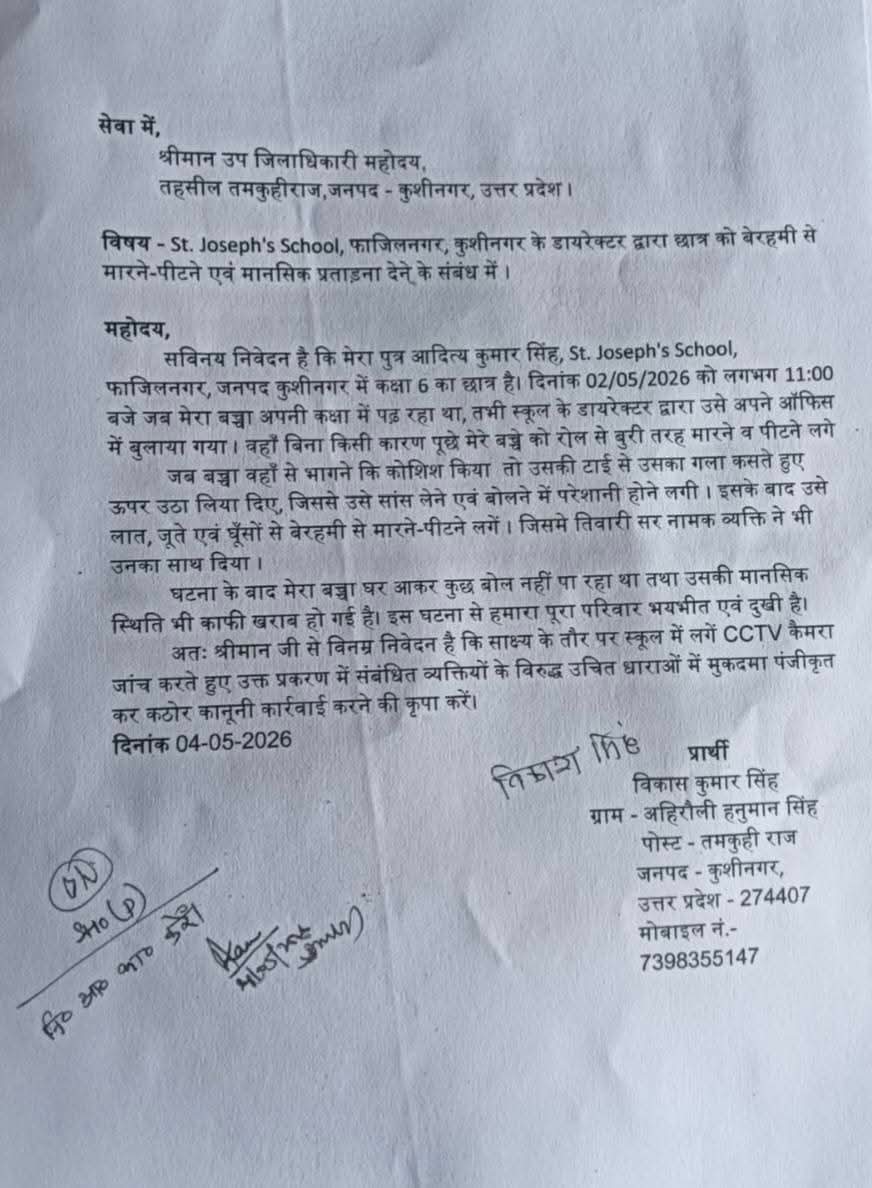 सेवा में,
श्रीमान उप जिलाधिकारी महोदय,
तहसील तमकुहीराज,जनपद - कुशीनगर, उत्तर प्रदेश।
विषय - St. Joseph's School, फाजिलनगर, कुशीनगर के डायरेक्टर द्वारा छात्र को बेरहमी से
मारने-पीटने एवं मानसिक प्रताड़ना देने के संबंध में।
महोदय,
सविनय निवेदन है कि मेरा पुत्र आदित्य कुमार सिंह, St. Joseph's School,
फाजिलनगर, जनपद कुशीनगर में कक्षा 6 का छात्र है। दिनांक 02/05/2026 को लगभग 11:00
बजे जब मेरा बच्चा अपनी कक्षा में पढ़ रहा था, तभी स्कूल के डायरेक्टर द्वारा उसे अपने ऑफिस
में बुलाया गया। वहाँ बिना किसी कारण पूछे मेरे बच्चे को रोल से बुरी तरह मारने व पीटने लगे
जब बच्चा वहाँ से भागने कि कोशिश किया तो उसकी टाई से उसका गला कसते हुए
ऊपर उठा लिया दिए, जिससे उसे सांस लेने एवं बोलने में परेशानी होने लगी। इसके बाद उसे
लात, जूते एवं घूँसों से बेरहमी से मारने-पीटने लगें। जिसमे तिवारी सर नामक व्यक्ति ने भी
उनका साथ दिया।
घटना के बाद मेरा बच्चा घर आकर कुछ बोल नहीं पा रहा था तथा उसकी मानसिक
स्थिति भी काफी खराब हो गई है। इस घटना से हमारा पूरा परिवार भयभीत एवं दुखी है।
अतः श्रीमान जी से विनम्र निवेदन है कि साक्ष्य के तौर पर स्कूल में लगें CCTV कैमरा
जांच करते हुए उक्त प्रकरण में संबंधित व्यक्तियों के विरुद्ध उचित धाराओं में मुकदमा पंजीकृत
कर कठोर कानूनी कार्रवाई करने की कृपा करें।
दिनांक 04-05-2026
विकाश सिंह
प्रार्थी
विकास कुमार सिंह
ग्राम - अहिरौली हनुमान सिंह
पोस्ट - तमकुही राज
जनपद - कुशीनगर,
उत्तर प्रदेश - 274407
मोबाइल नं.-
7398355147